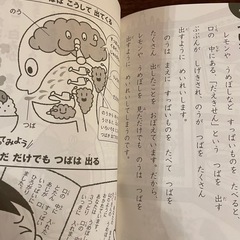 レモンや うめぼしなど すっぱいものを たべると、
口の 中にある、「だえきせん」という つばを
ぶぶんが しげきされ のうが つばを たくさん
出すように めいれいします。
のうは まえに すっぱいものを たべて つばを
たくさん 出したことを おぼえています。だから、
レモンや うめぼしを 見ただけでも のうは つばを
出すように めいれいします。
つばは こうして 出てくる
のう
つば
みよう
だけでも つばは 出る